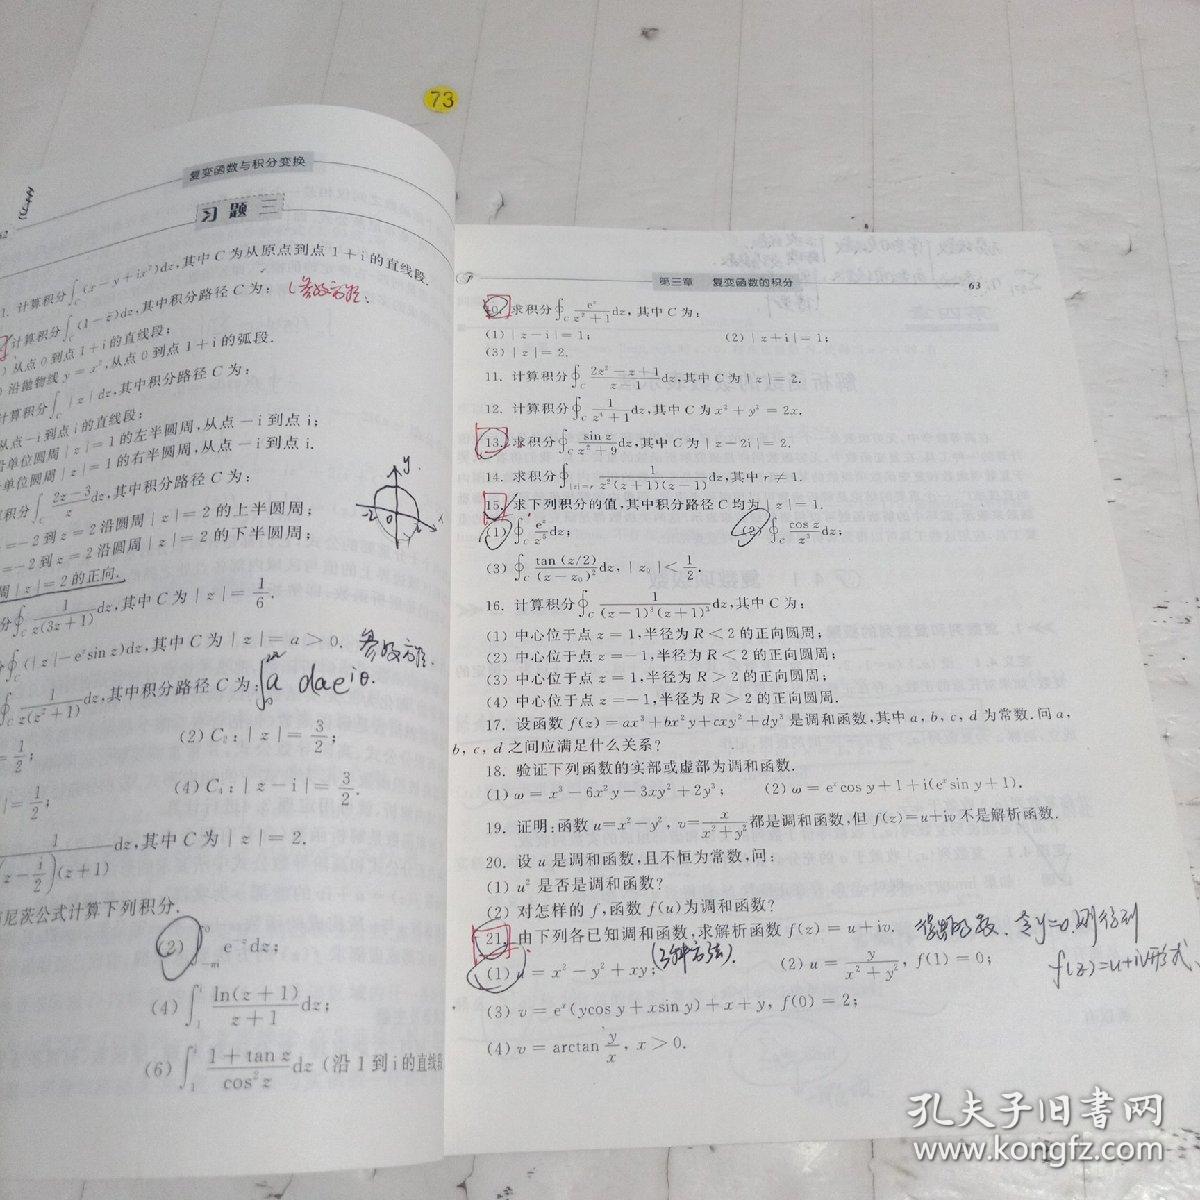 73
复变函数与积分变换
习题三
1. 计算积分∫_C(x-y+ix²)dz,其中C为从原点到点1+i的直线段.
计算积分∫_C(1-z̄)dz,其中积分路径C为:
从点0到点1+i的直线段;
沿抛物线y=x²,从点0到点1+i的弧段.
计算积分∫_C|z|dz,其中积分路径C为:
从点-i到点i的直线段;
单位圆周|z|=1的左半圆周,从点-i到点i;
单位圆周|z|=1的右半圆周,从点-i到点i.
积分∫_C (2z-3)/z dz,其中积分路径C为:
=-2到z=2沿圆周|z|=2的上半圆周;
=-2到z=2沿圆周|z|=2的下半圆周;
周|z|=2的正向.
分∮_C 1/(z(3z+1)) dz,其中C为|z|=1/6.
∮_C(|z|-e^z sin z)dz,其中C为|z|=a>0. 参数方程.
∮_C 1/(z(z²+1)) dz,其中积分路径C为:
1/2; (2) C₂:|z|=3/2;
|=1/2; (4) C₄:|z-i|=3/2.
1/((z-i/2)(z+1)) dz,其中C为|z|=2.
尼茨公式计算下列积分.
(2) e^{-z}dz;
(4) ∫ ln(z+1)/(z+1) dz;
(6) ∫ (1+tan z)/cos²z dz (沿1到i的直线段
y
-2 0
第三章 复变函数的积分 63
10. 求积分∮_C e^z/(z²+1) dz,其中C为:
(1) |z-i|=1; (2) |z+i|=1;
(3) |z|=2.
11. 计算积分∮_C (2z²-z+1)/(z-1) dz,其中C为|z|=2.
12. 计算积分∮_C 1/(z⁴+1) dz,其中C为x²+y²=2x.
13. 求积分∮_C sin z/(z²+9) dz,其中C为|z-2i|=2.
14. 求积分∮_{|z|=r} 1/(z³(z+1)(z-1)) dz,其中r≠1.
15. 求下列积分的值,其中积分路径C均为|z|=1.
(1) ∮_C e^z/z⁵ dz; (2) ∮_C cos z/z³ dz;
(3) ∮_C tan(z/2)/(z-z₀)² dz, |z₀|<1/2.
16. 计算积分∮_C 1/((z-1)³(z+1)³) dz,其中C为:
(1) 中心位于点z=1,半径为R<2的正向圆周;
(2) 中心位于点z=-1,半径为R<2的正向圆周;
(3) 中心位于点z=1,半径为R>2的正向圆周;
(4) 中心位于点z=-1,半径为R>2的正向圆周.
17. 设函数f(z)=ax³+bx²y+cxy²+dy³是调和函数,其中a,b,c,d为常数.问a,
b,c,d之间应满足什么关系?
18. 验证下列函数的实部或虚部为调和函数.
(1) ω=x³-6x²y-3xy²+2y³; (2) ω=e^x cos y+1+i(e^x sin y+1).
19. 证明:函数u=x²-y², v=x/(x²+y²)都是调和函数,但f(z)=u+iv不是解析函数.
20. 设u是调和函数,且不恒为常数,问:
(1) u²是否是调和函数?
(2) 对怎样的f,函数f(u)为调和函数?
21. 由下列各已知调和函数,求解析函数f(z)=u+iv.
(1) u=x²-y²+xy; (3种方法). (2) u=y/(x²+y²), f(1)=0;
(3) v=e^x(ycos y+xsin y)+x+y, f(0)=2;
(4) v=arctan y/x, x>0.
令y=0.则得到
f(z)=u+iv形式
孔夫子旧书网
www.kongfz.com